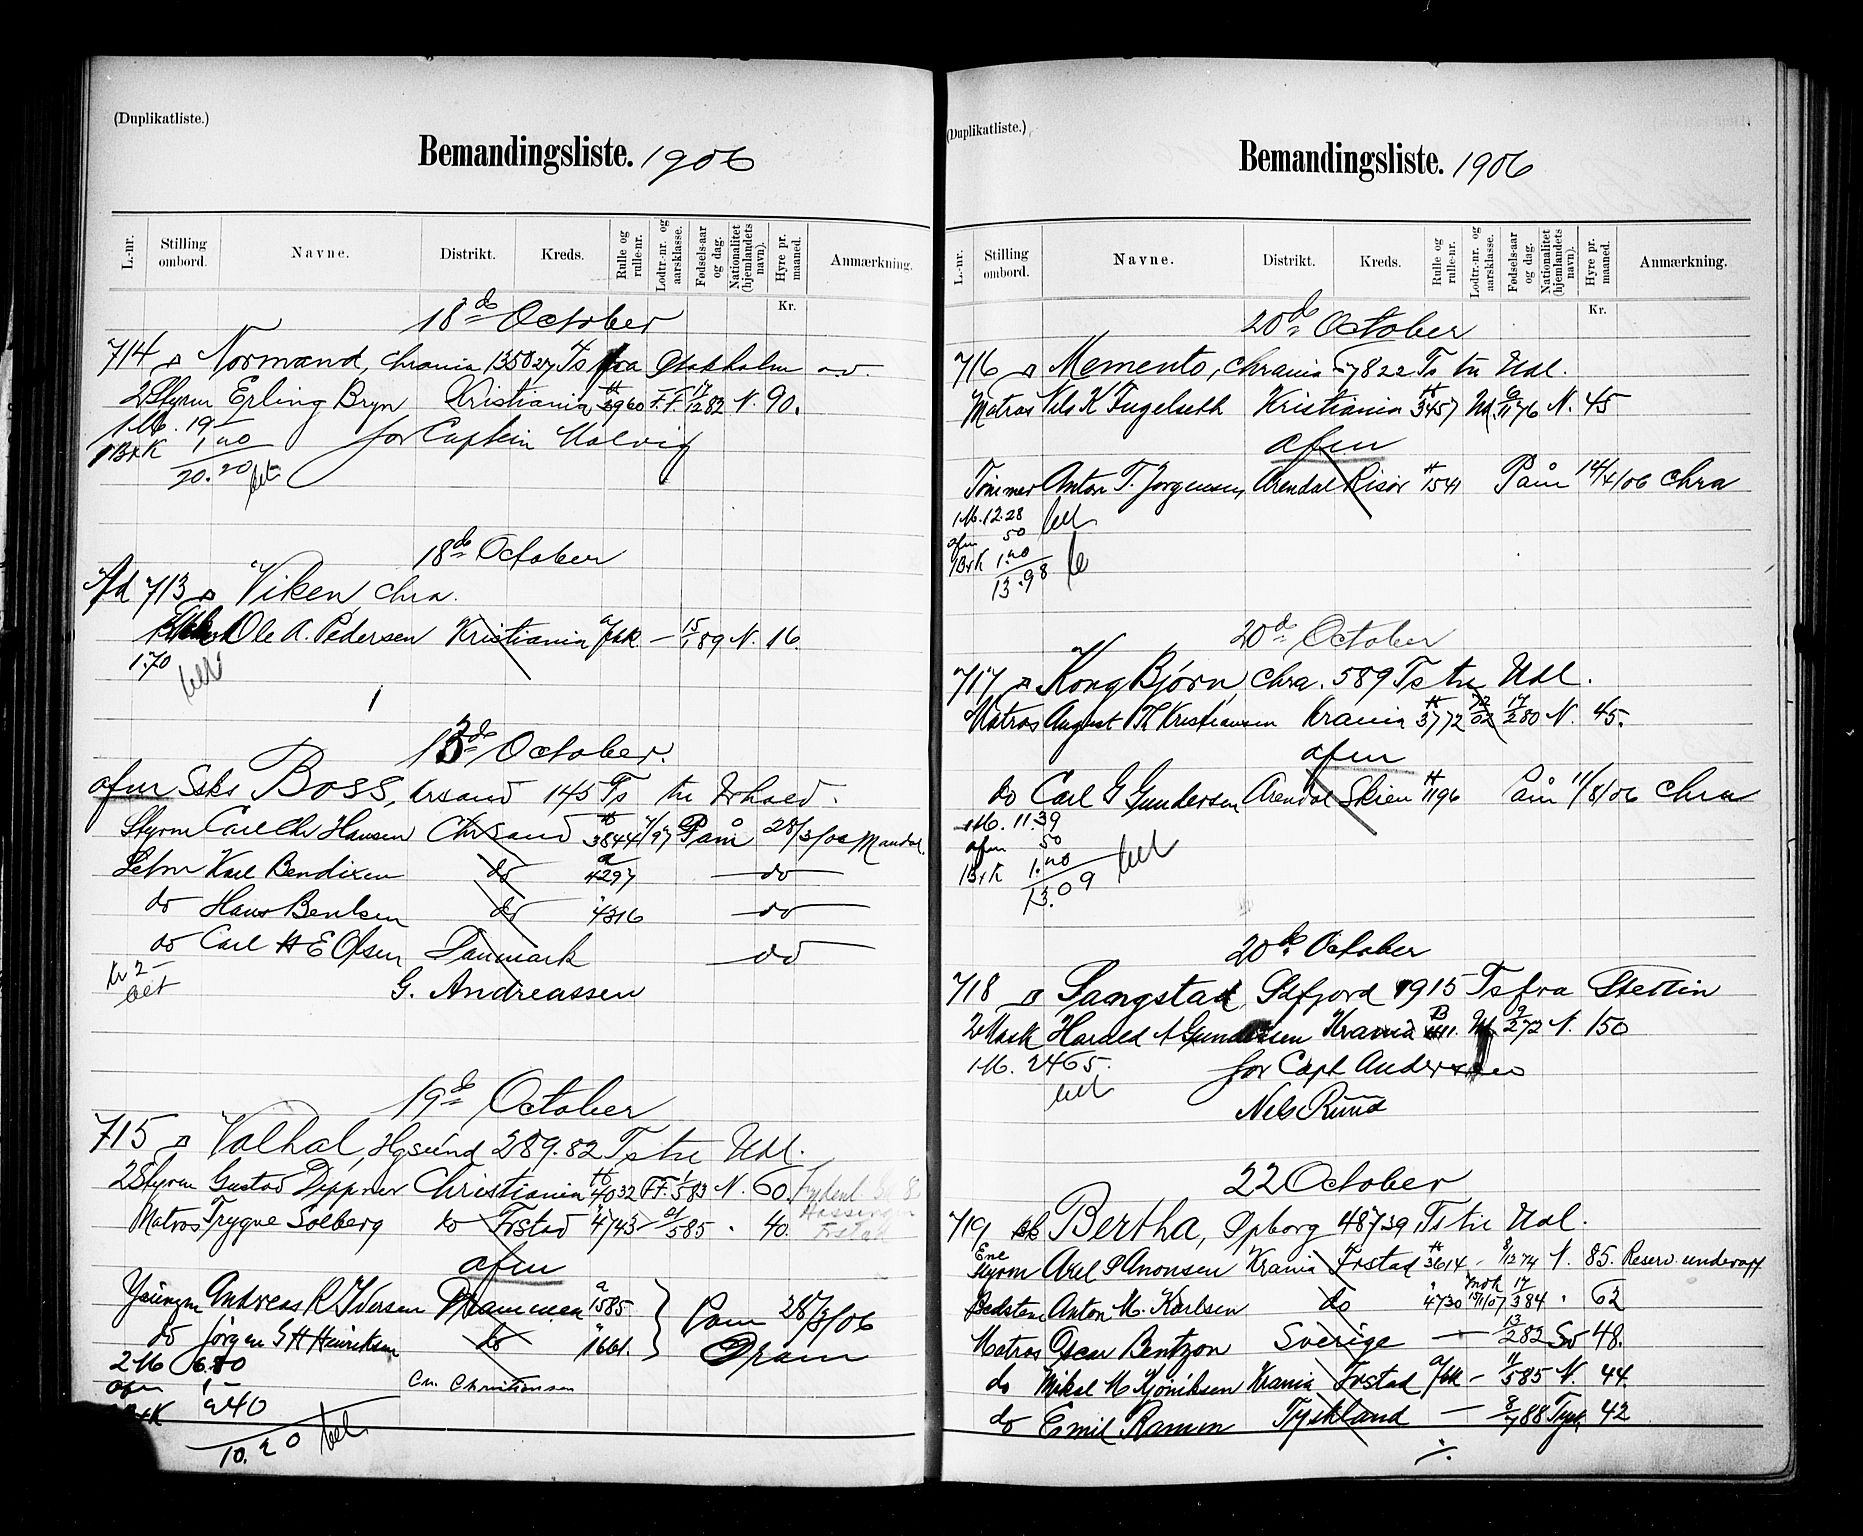 (Duplikatliste.)
Bemandingsliste. 1906
L.-nr. Stilling ombord. Navne. Distrikt. Kreds. Rulle og rulle-nr. Lodtr.-nr. og aarsklasse. Fødsels-aar og dag. Nationalitet (hjemlandets navn). Hyre pr. maaned. Anmærkning.
Kr.
18de October
714 Normand, Chrania 1350 27 Ts fra Stokholm
2 Styrm Erling Bryn Kristiania 3960 F.F. 17/12 82 N. 90.
1 M. 19 –
1 BrK 1,20 for Captein
20.20 bet.
18de October
Ad 713 Viken, Chra.
Ole A. Pedersen Kristiania a/fsk. – 15/1 89 N. 16.
1.70
bet
13de October.
afm Sk Boss, Krsand 145 Ts
Styrm Carl Chr Hansen Chrsand 3844 Paam 28/3/06 Mandal.
Letm Karl Bendixen do 4297 do
do Hans Bentsen do 4316 do
do Carl H E Olsen Danmark do
Kr 2 –
bet G. Andreassen
19de October
715 Valhal, Hgsund 289.82 Ts til Udl.
2 Styrm Gustav Deppner Christiania 4032 F.F. 1/5 83 N. 60.
Matros Trygve Solberg do Frstad 4743 5 85 " 40.
afm
Youngm Andreas R Iversen Drammen a 1585
do Jörgen G H Henriksen do " 1661. Paam 28/3/06 Dram
2 M 6.80
afm 1 – Chr. Christiansen
BrK 2 40
10.20 bet.
(Duplikatliste.)
Bemandingsliste. 1906
L.-nr. Stilling ombord. Navne. Distrikt. Kreds. Rulle og rulle-nr. Lodtr.-nr. og aarsklasse. Fødsels-aar og dag. Nationalitet (hjemlandets navn). Hyre pr. maaned. Anmærkning.
Kr.
20de October
716 Memento, Chrania 578 22 Ts til Udl.
Matros Nils K Fugelseth Kristiania 3457 Ud. 6/11 76 N. 45
afm
Tömmer Anton T. Jorgensen, Arendal Risör 1541 Paam 14/4/06 Chra
1 M. 12.28 bet
afm 50
BrK 1.20
13.98
20de October
717 Kong Björn, Chra. 589 Ts til Udl.
Matros August Th Kristiansen Krania 3772 17/2 80 N. 45.
afm
do Carl G Gundersen Arendal Skien 1196 Paam 11/8/06 Chra
1 M. 11.39
afm 50
BrK 1.20 bet
13.09
20de October
718 Sangstad, Sdfjord 1915 Ts fra Stettin
2 Mask Harald A Gundersen Krania Ud 9/2 72 N. 150
1 M. 24 65. for Capt Andersen
bet
Nils Ruud
22 October
719 Bk Bertha, Spborg 487 39 Ts til Udl.
Ene Styrm Axel P Anonsen Krania Frstad 3614 – 8/12 74 N. 85. Reserv underoff
Bedstem Anton M. Karlsen do 4730 17/3 84 " 62
Matros Oscar Bentzon Sverige – 13/2 82 Sv 48.
do Mikal M. Krania Frstad a/fsk – 11/5 85 N. 44.
do Emil Ramm Tyskland – 8/7 88 Tysk. 42
./.